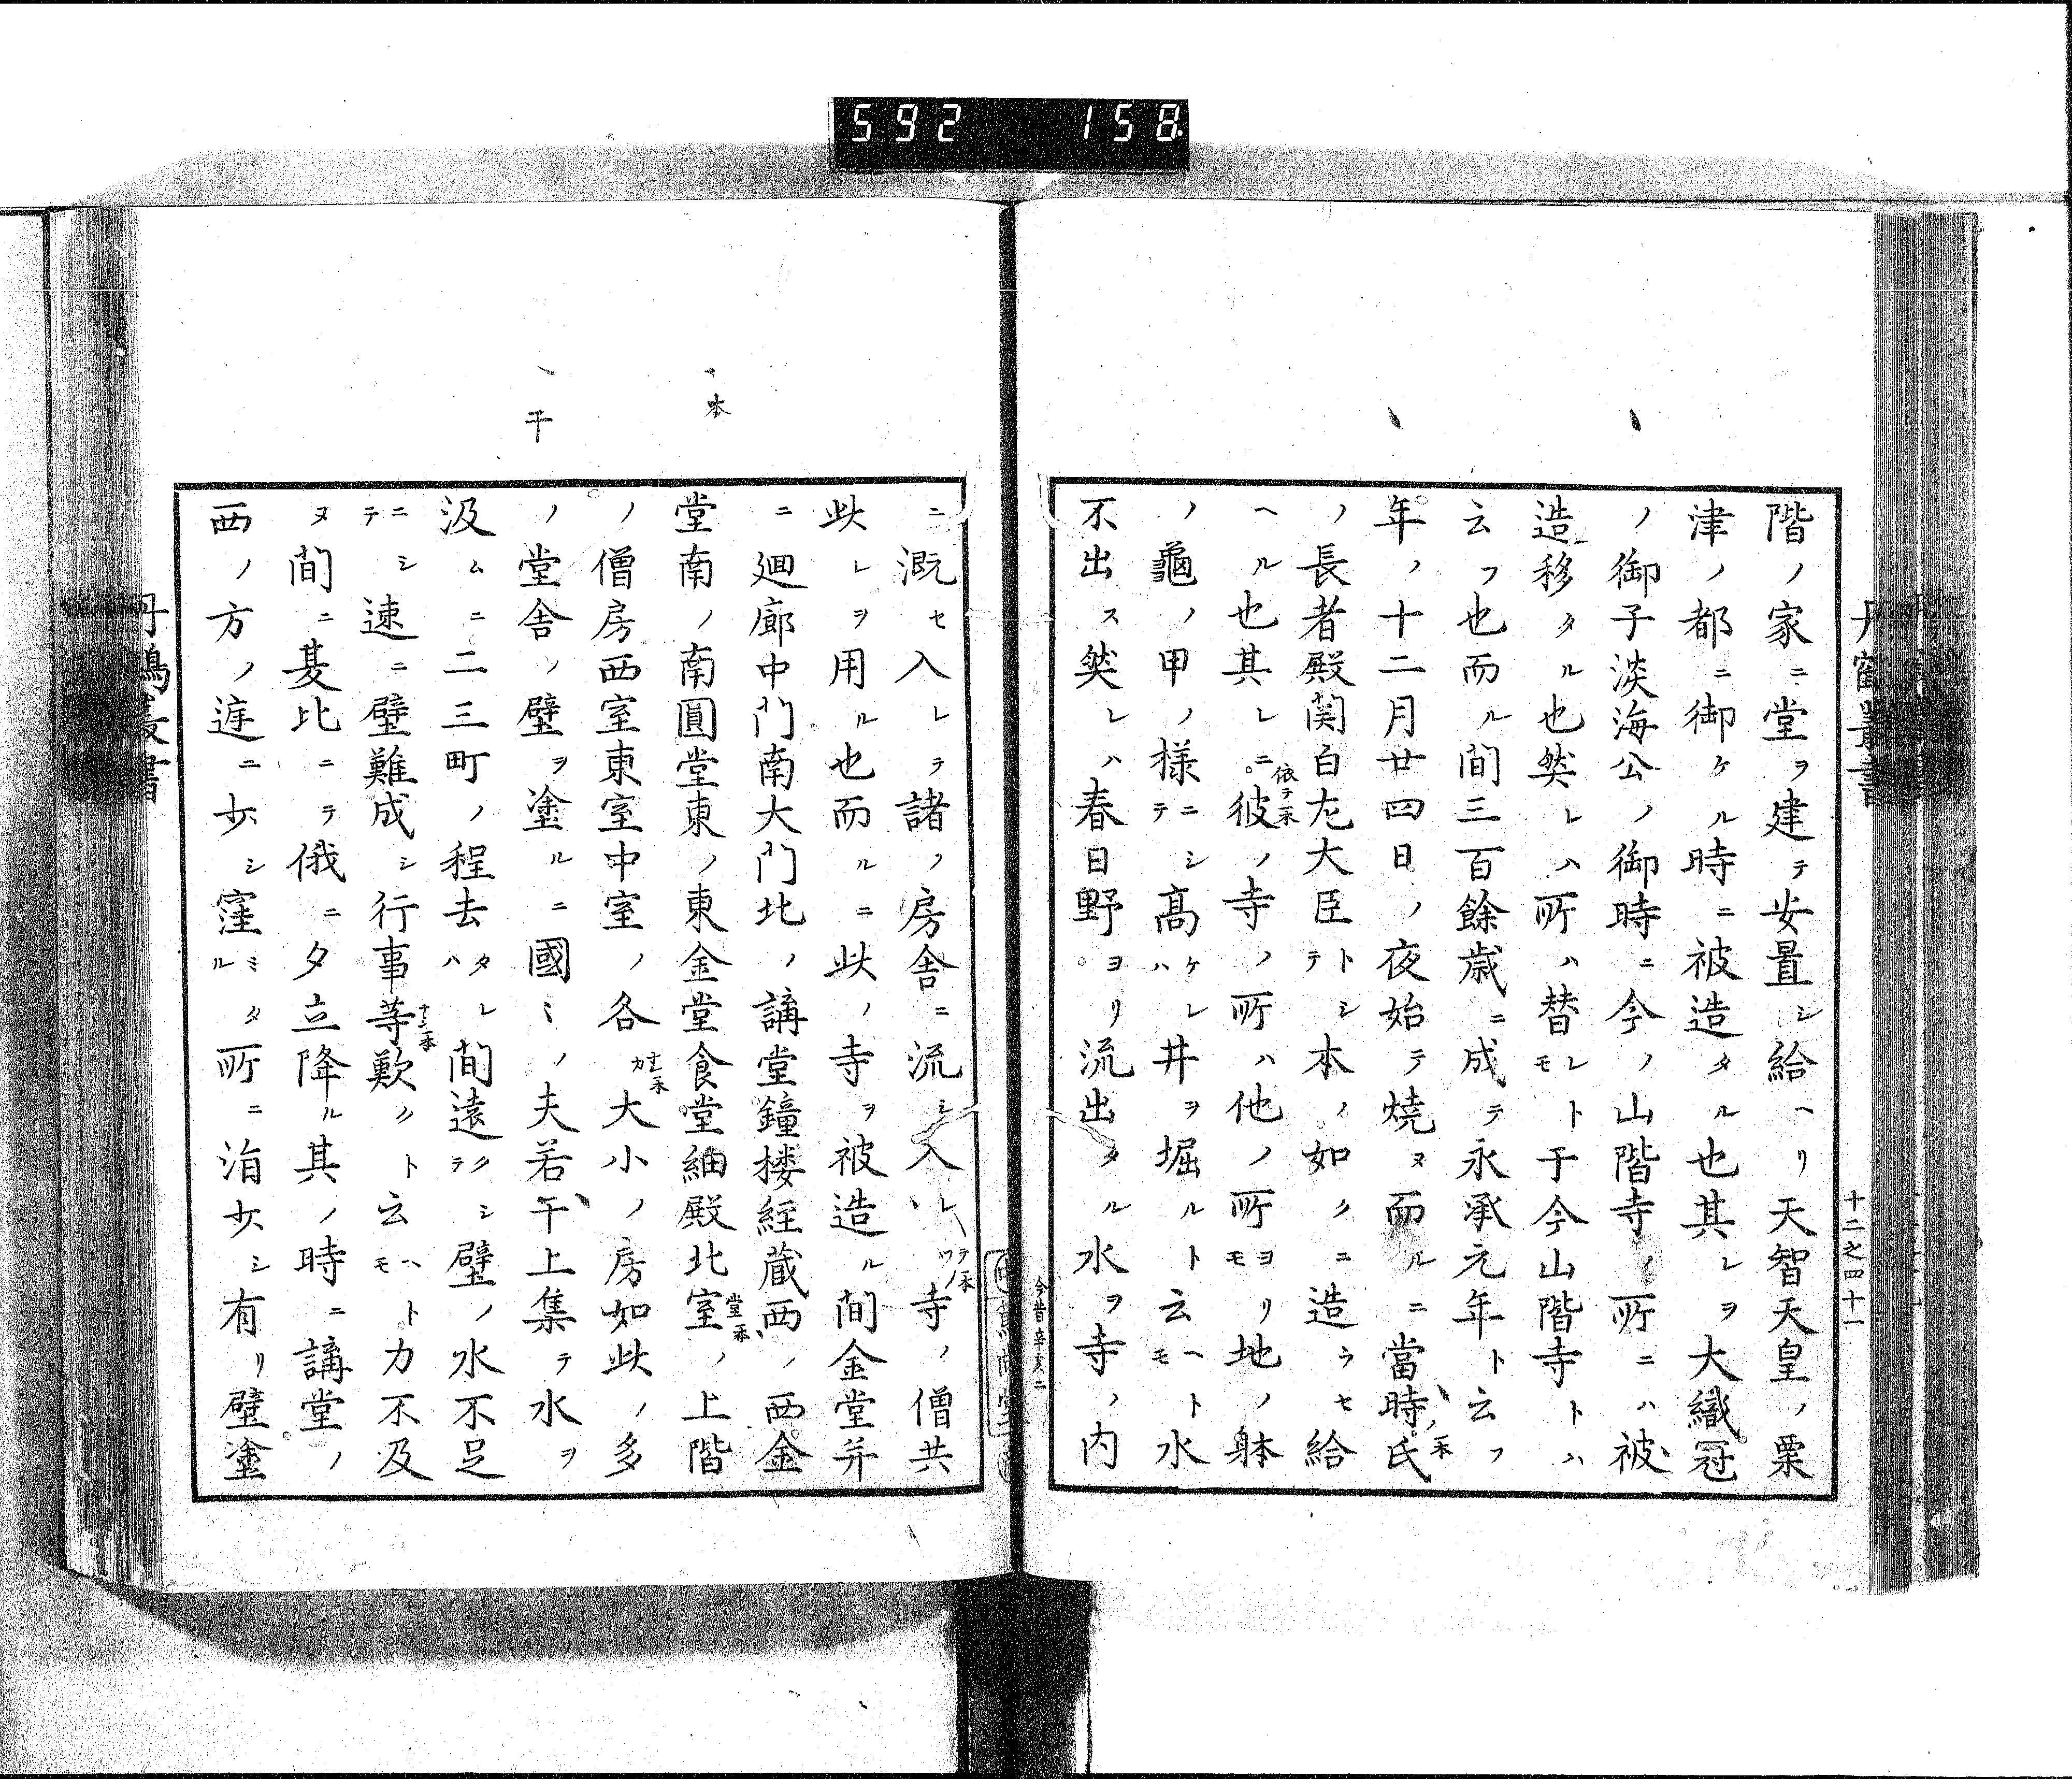 592 158
丹鶴叢書
十二之四十一
階ノ家ニ堂ヲ建テ安置シ給ヘリ天智天皇ノ粟
津ノ都ニ御ケル時ニ被造タル也其レヲ大織冠
ノ御子淡海公ノ御時ニ今ノ山階寺ノ所ニハ被
造移タル也然レハ所ハ替レトモ于今山階寺トハ
云フ也而ル間三百餘歳ニ成テ永承元年ト云フ
年ノ十二月廿四日ノ夜始テ焼ヌ而ルニ當時ノ一本氏
ノ長者殿関白左大臣トシテ本ノ如クニ造ラセ給
ヘル也其レニ依テ一本彼ノ寺ノ所ハ他ノ所ヨリモ地ノ躰
ノ龜ノ甲ノ様ニシテ高ケレハ井ヲ堀ルト云ヘトモ水
不出ス然レハ春日野ヨリ流出タル水ヲ寺ノ内
今昔辛亥二
ニ漑セ入レテ諸ノ房舎ニ流シ入レ寺ノ僧共
此レヲ用ル也而ルニ此ノ寺ヲ被造ル間金堂并
ニ廻廊中門南大門北ノ講堂鐘楼経蔵西ノ西金
本
堂南ノ南圓堂東ノ東金堂食堂細殿北室堂一本ノ上階
ノ僧房西室東室中室ノ各大小ノ房如此ノ多
干
ノ堂舎ノ壁ヲ塗ルニ國ミノ夫若午上集テ水ヲ
汲ムニ二三町ノ程去タレハ間遠クシテ壁ノ水不足
ニシテ速ニ壁難成シ行事等ナン一本歎クト云ヘトモ力不及
ヌ間ニ夏比ニテ俄ニ夕立降ル其ノ時ニ講堂ノ
西ノ方ノ逵ニ少シ窪ミタル所ニ㴞少シ有リ壁塗
丹鶴叢書